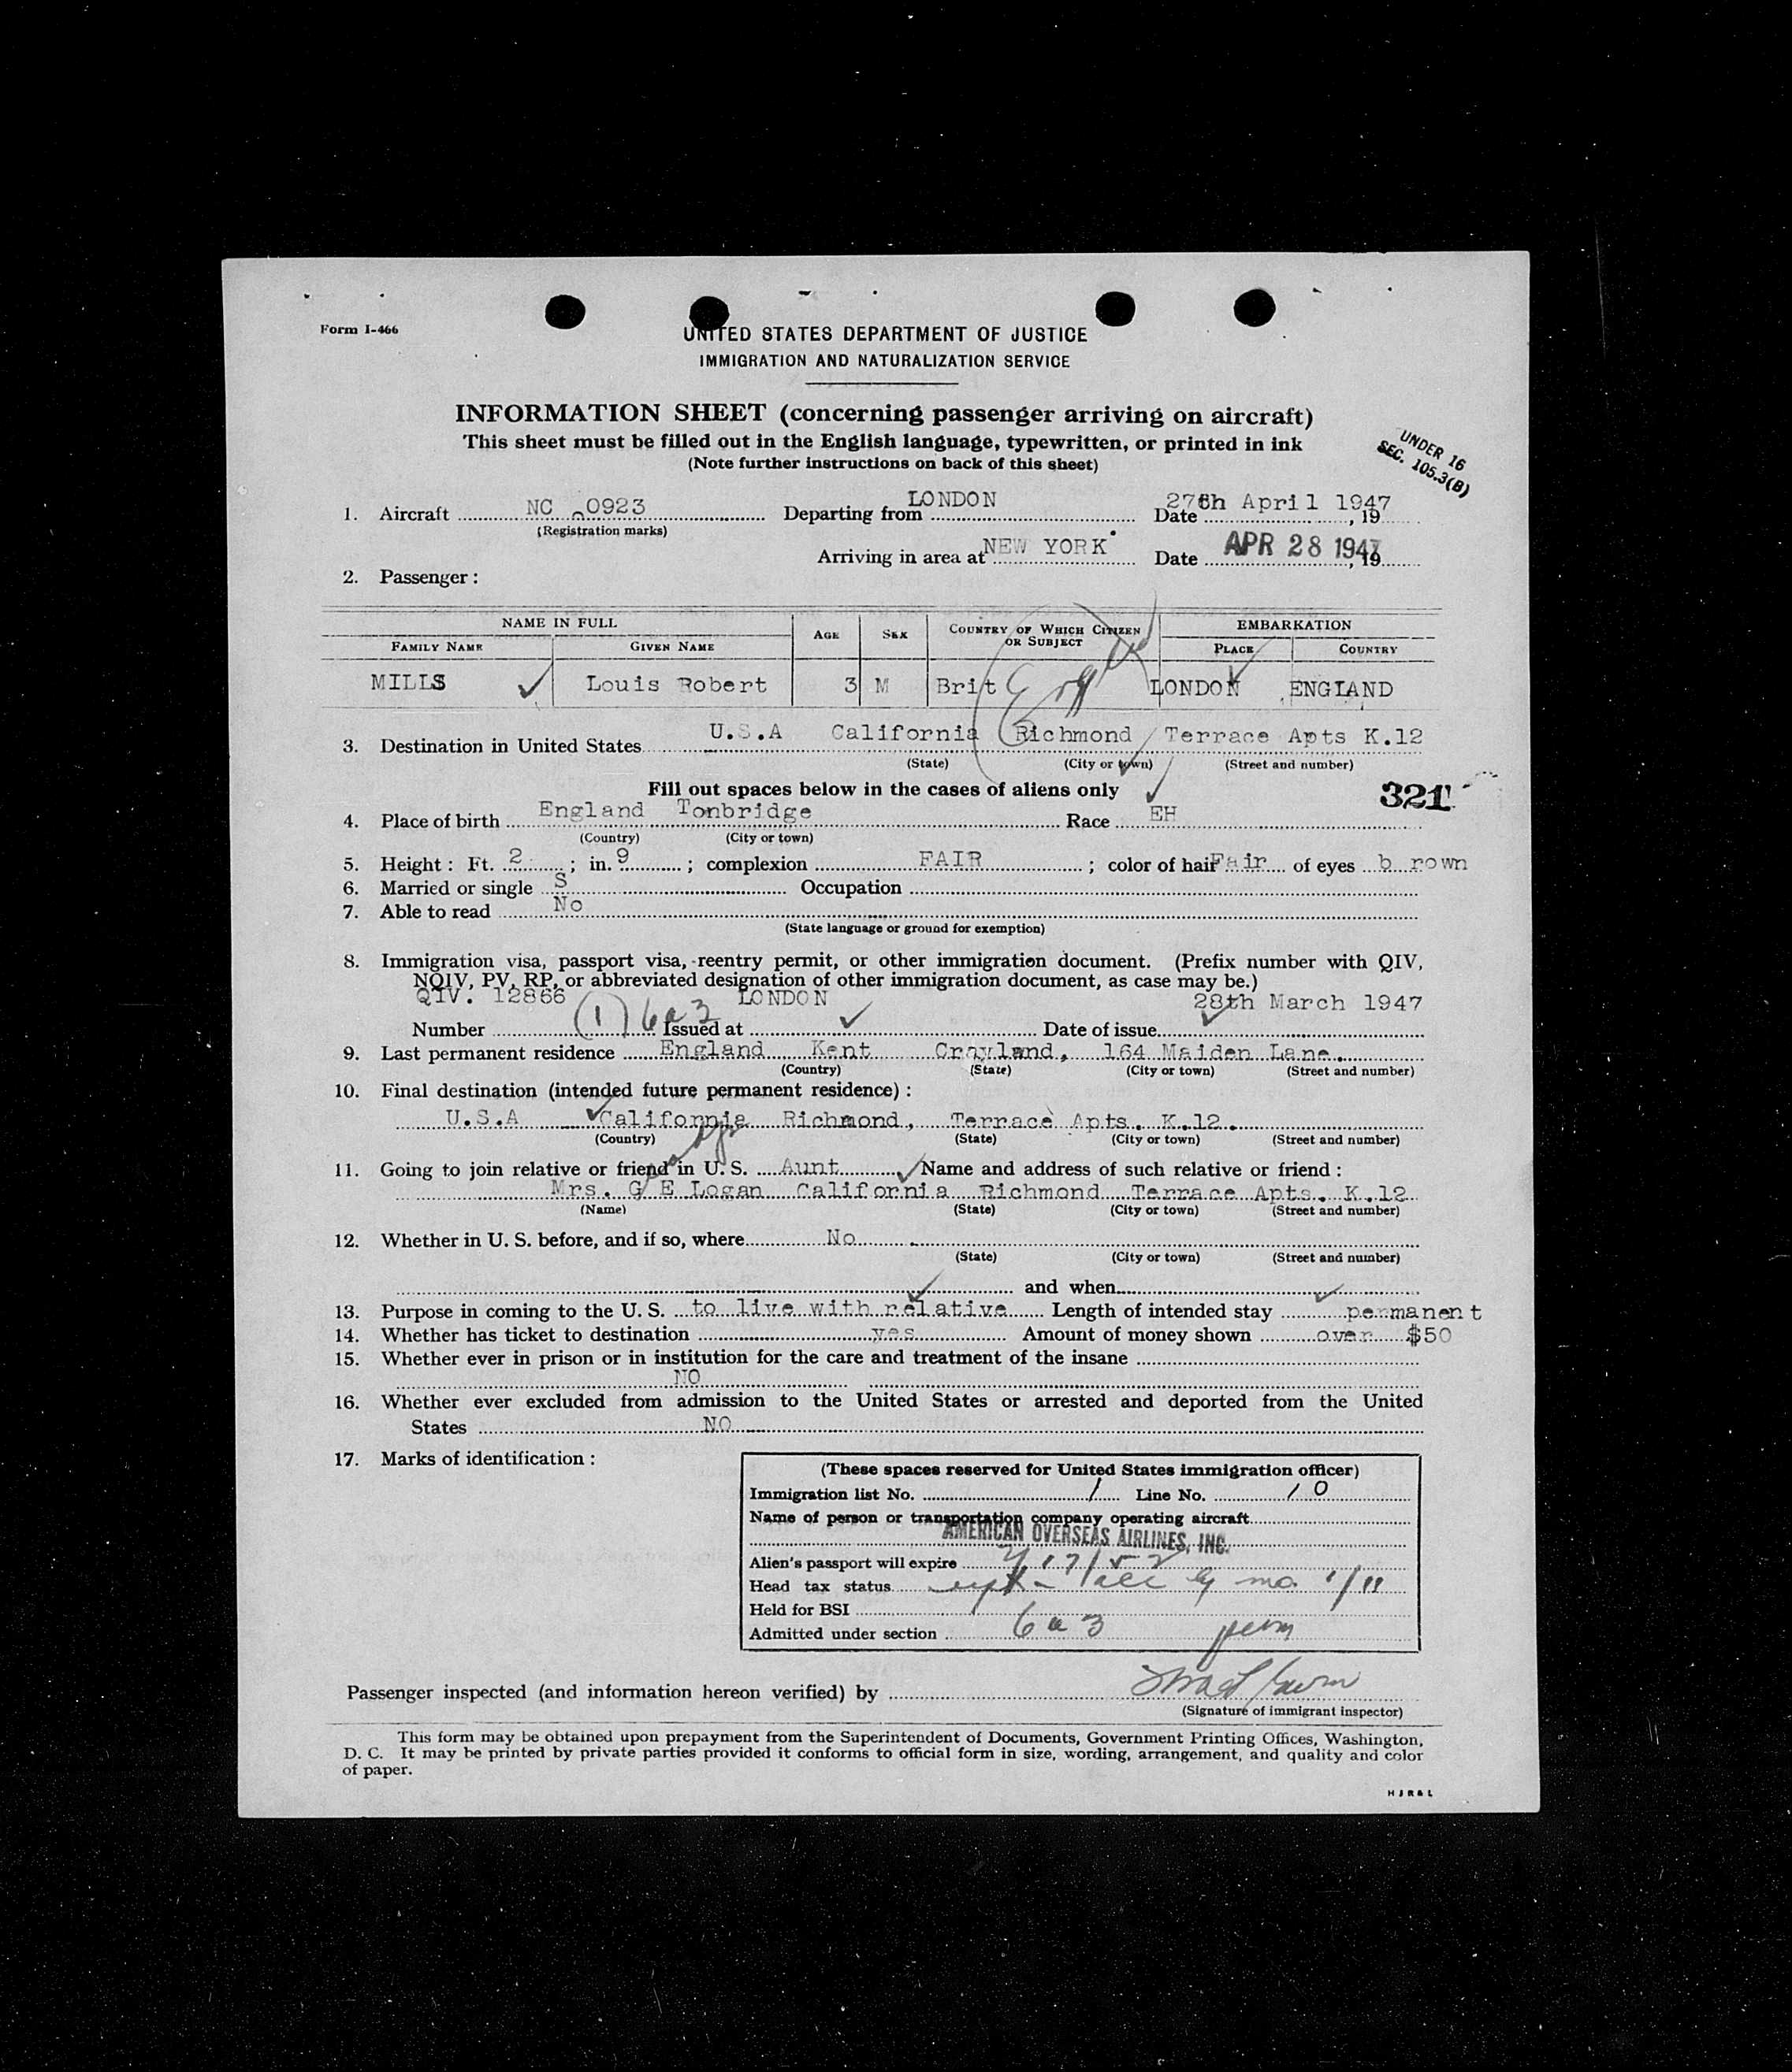 Form I-466
UNITED STATES DEPARTMENT OF JUSTICE
IMMIGRATION AND NATURALIZATION SERVICE
INFORMATION SHEET (concerning passenger arriving on aircraft)
This sheet must be filled out in the English language, typewritten, or printed in ink
(Note further instructions on back of this sheet)
UNDER 16
SEC. 105.3(B)
1. Aircraft NC 0923 Departing from LONDON Date 27th April 1947, 19
(Registration marks)
Arriving in area at NEW YORK Date APR 28 1947, 19
2. Passenger:
NAME IN FULL AGE SEX COUNTRY OF WHICH CITIZEN OR SUBJECT EMBARKATION
FAMILY NAME GIVEN NAME PLACE COUNTRY
MILLS Louis Robert 3 M Brit LONDON ENGLAND
3. Destination in United States U.S.A California Richmond Terrace Apts K.12
(State) (City or town) (Street and number)
Fill out spaces below in the cases of aliens only
321
4. Place of birth England Tonbridge Race EH
(Country) (City or town)
5. Height: Ft. 2; in. 9; complexion FAIR; color of hair Fair of eyes b rown
6. Married or single S Occupation
7. Able to read No
(State language or ground for exemption)
8. Immigration visa, passport visa, reentry permit, or other immigration document. (Prefix number with QIV,
NQIV, PV, RP, or abbreviated designation of other immigration document, as case may be.)
QIV. 12866 LONDON 28th March 1947
Number (1) 6a3 Issued at Date of issue
9. Last permanent residence England Kent Crayland, 164 Maiden Lane.
(Country) (State) (City or town) (Street and number)
10. Final destination (intended future permanent residence):
U.S.A California Richmond, Terrace Apts. K.12.
(Country) (State) (City or town) (Street and number)
11. Going to join relative or friend in U. S. Aunt Name and address of such relative or friend:
Mrs. G E Logan California Richmond Terrace Apts. K.12
(Name) (State) (City or town) (Street and number)
12. Whether in U. S. before, and if so, where No
(State) (City or town) (Street and number)
and when
13. Purpose in coming to the U. S. to live with relative Length of intended stay permanent
14. Whether has ticket to destination yes Amount of money shown over $50
15. Whether ever in prison or in institution for the care and treatment of the insane
NO
16. Whether ever excluded from admission to the United States or arrested and deported from the United
States NO
17. Marks of identification:
(These spaces reserved for United States immigration officer)
Immigration list No. 1 Line No. 10
Name of person or transportation company operating aircraft
AMERICAN OVERSEAS AIRLINES, INC.
Alien's passport will expire
Head tax status
Held for BSI
Admitted under section 6a3 perm
Passenger inspected (and information hereon verified) by
(Signature of immigrant inspector)
This form may be obtained upon prepayment from the Superintendent of Documents, Government Printing Offices, Washington,
D. C. It may be printed by private parties provided it conforms to official form in size, wording, arrangement, and quality and color
of paper.
H J R & L